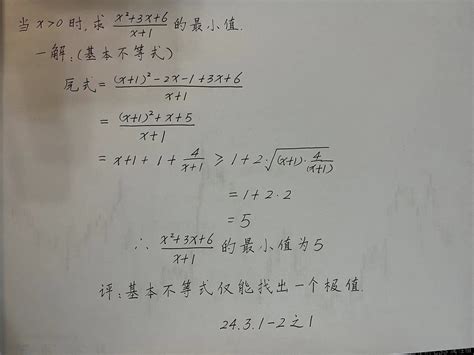 当 x>0 时, 求 (x²+3x+6)/(x+1) 的最小值.
一解:(基本不等式)
原式 = ((x+1)²-2x-1+3x+6)/(x+1)
= ((x+1)²+x+5)/(x+1)
= x+1+1+4/(x+1) ≥ 1+2·√((x+1)·4/(x+1))
= 1+2·2
= 5
∴ (x²+3x+6)/(x+1) 的最小值为5
评:基本不等式仅能找出一个极值.
24.3.1-2之1